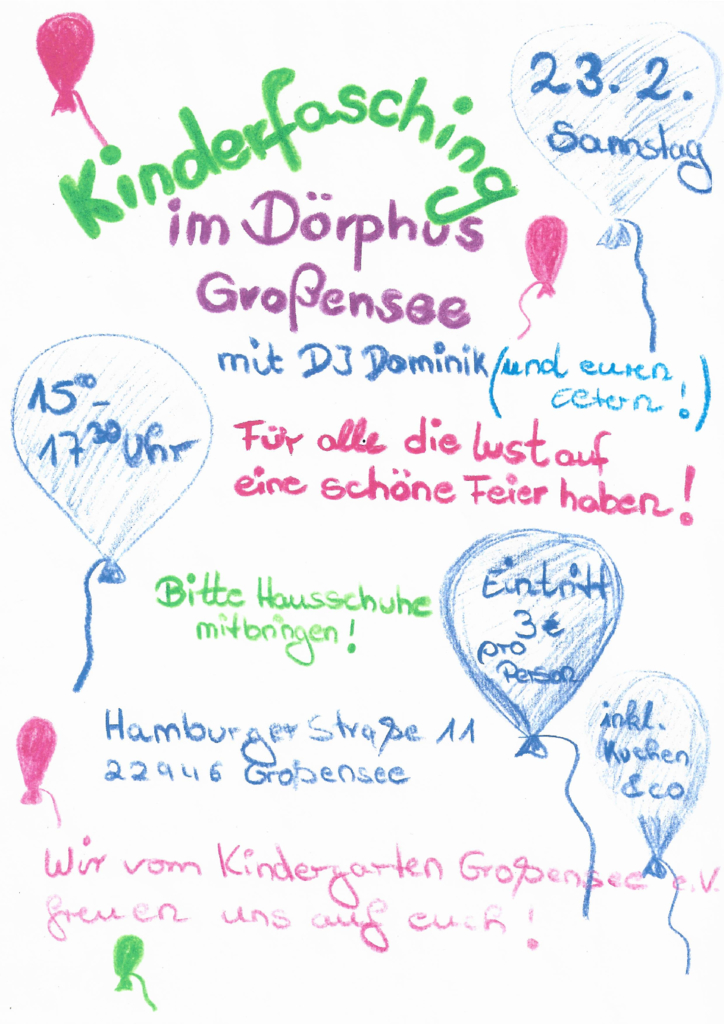 Kinderfasching
23. 2.
Samstag
im Dörphus
Großensee
mit DJ Dominik (und euren
Eltern!)
15⁰⁰ -
17³⁰ Uhr
Für alle die Lust auf
eine schöne Feier haben!
Bitte Hausschuhe
mitbringen!
Eintritt
3 €
pro
Person
inkl.
Kuchen
& co.
Hamburger Straße 11
22946 Großensee
Wir vom Kindergarten Großensee e.V.
freuen uns auf euch!